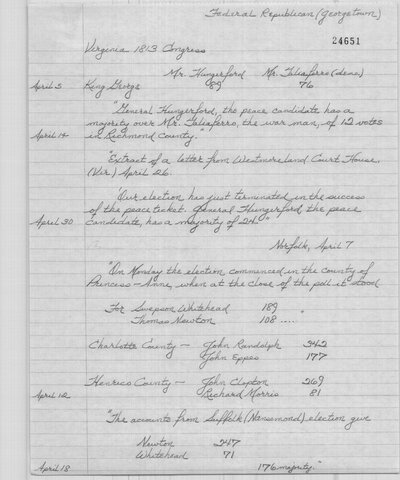 Federal Republican (Georgetown)
24651
Virginia 1813 Congress
Mr. Hungerford Mr. Taliaferro (dem)
April 5 King George 89 76
"General Hungerford, the peace candidate has a
majority over Mr. Taliaferro, the war man, of 12 votes
April 14 in Richmond County."
"Extract of a letter from Westmoreland Court House,
(Vir) April 26.
'Our election has just terminated in the success
of the peace ticket. General Hungerford the peace
April 30 candidate, has a majority of 24.'"
Norfolk, April 7
"On Monday the election commenced in the county of
Princess-Anne, when at the close of the poll it stood
For Swepson Whitehead 189
Thomas Newton 108 ...."
Charlotte County - John Randolph 342
John Eppes 177
Henrico County - John Clopton 269
April 12 Richard Morris 81
"The accounts from Suffolk (Nansemond) election give
Newton 247
Whitehead 71
April 18 176 majority."